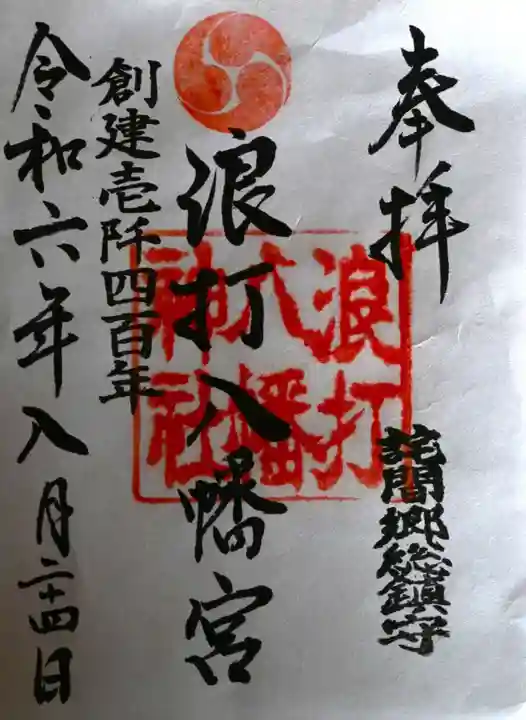 奉拝
詫間郷総鎮守
浪打八幡宮
浪打
八幡
神社
創建壱阡四百年
令和六年八月二十四日